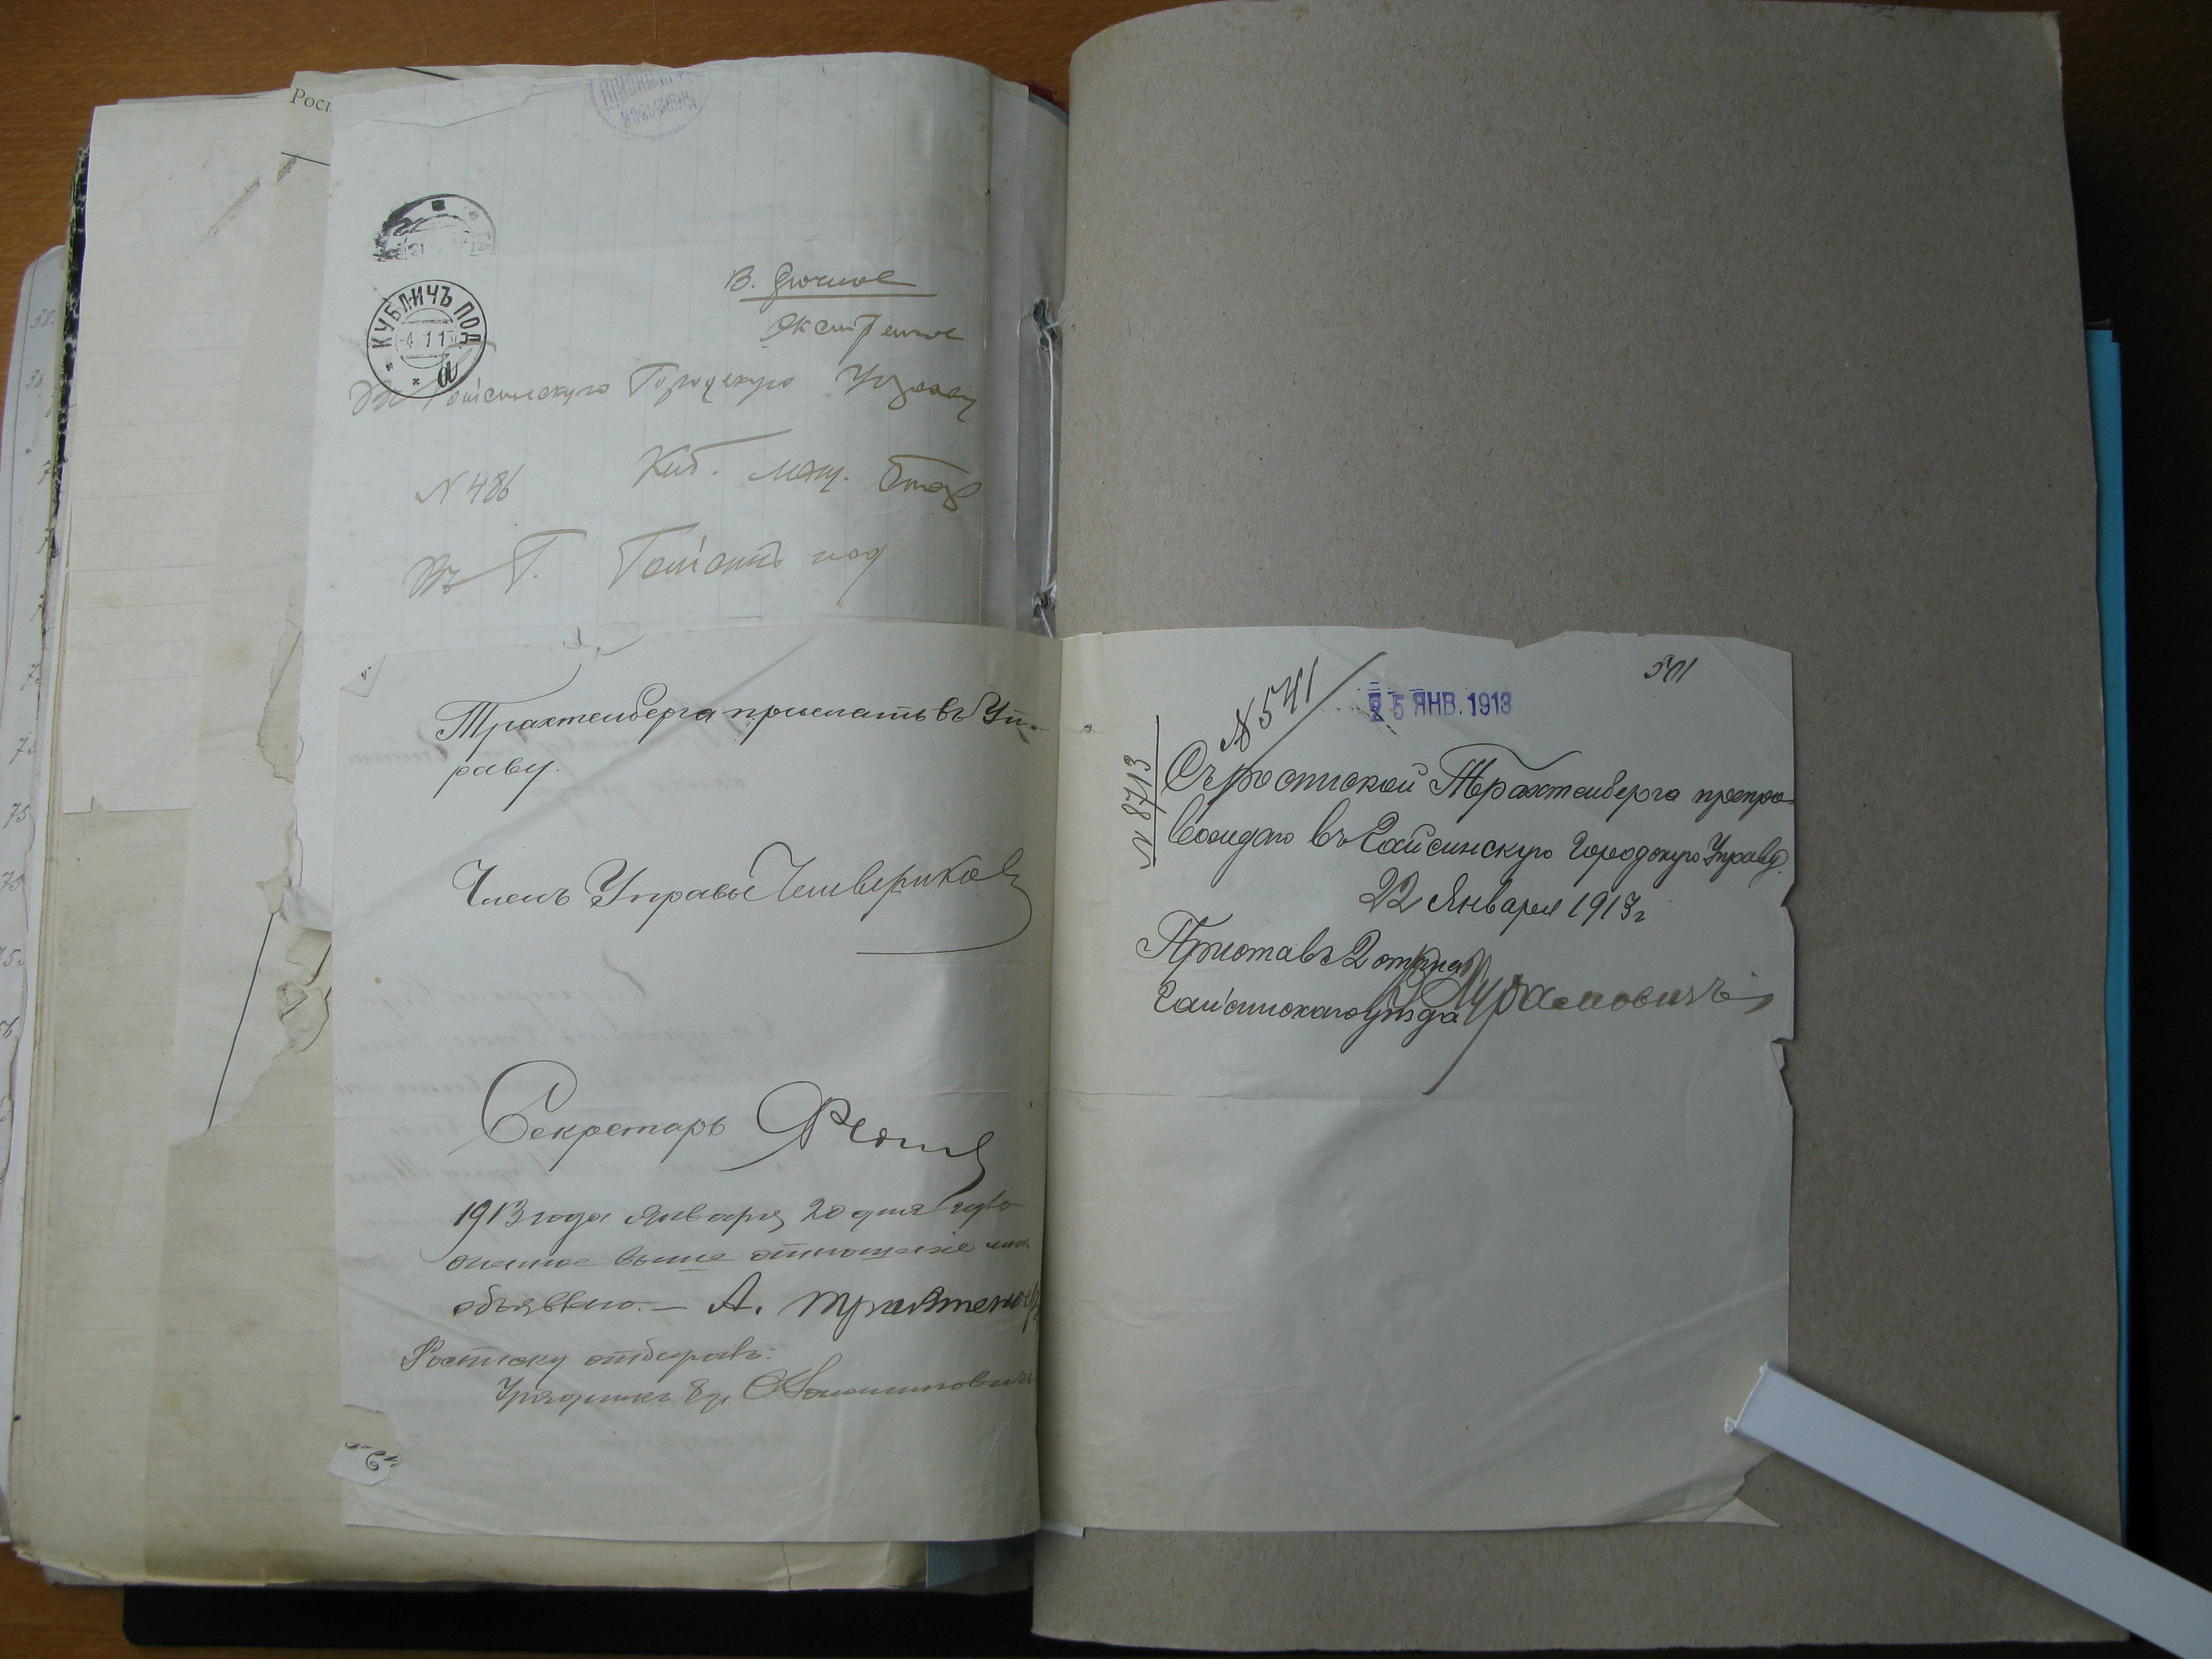 Росп
КУБЛИЧЪ ПОД.
В. срочное
Экстренное
Въ Гайсинскую Городскую Управу
N 486
Въ Г. Гайсинъ под
Трахтенберга прислать въ Уп-
раву.
Членъ Управы Чемвериков
Секретарь
1913 года Января 20 дня
выше отношение мнѣ
объявлено. — А. Трахтенберг
Росписку отбиралъ:
Урядникъ 8 у.
501
N 541
25 ЯНВ. 1913
N 87/13
Съ роспиской Трахтенберга препро-
вождаю въ Гайсинскую Городскую Управу.
22 Января 1913 г
Приставъ 2 стана
Гайсинскаго уѣзда